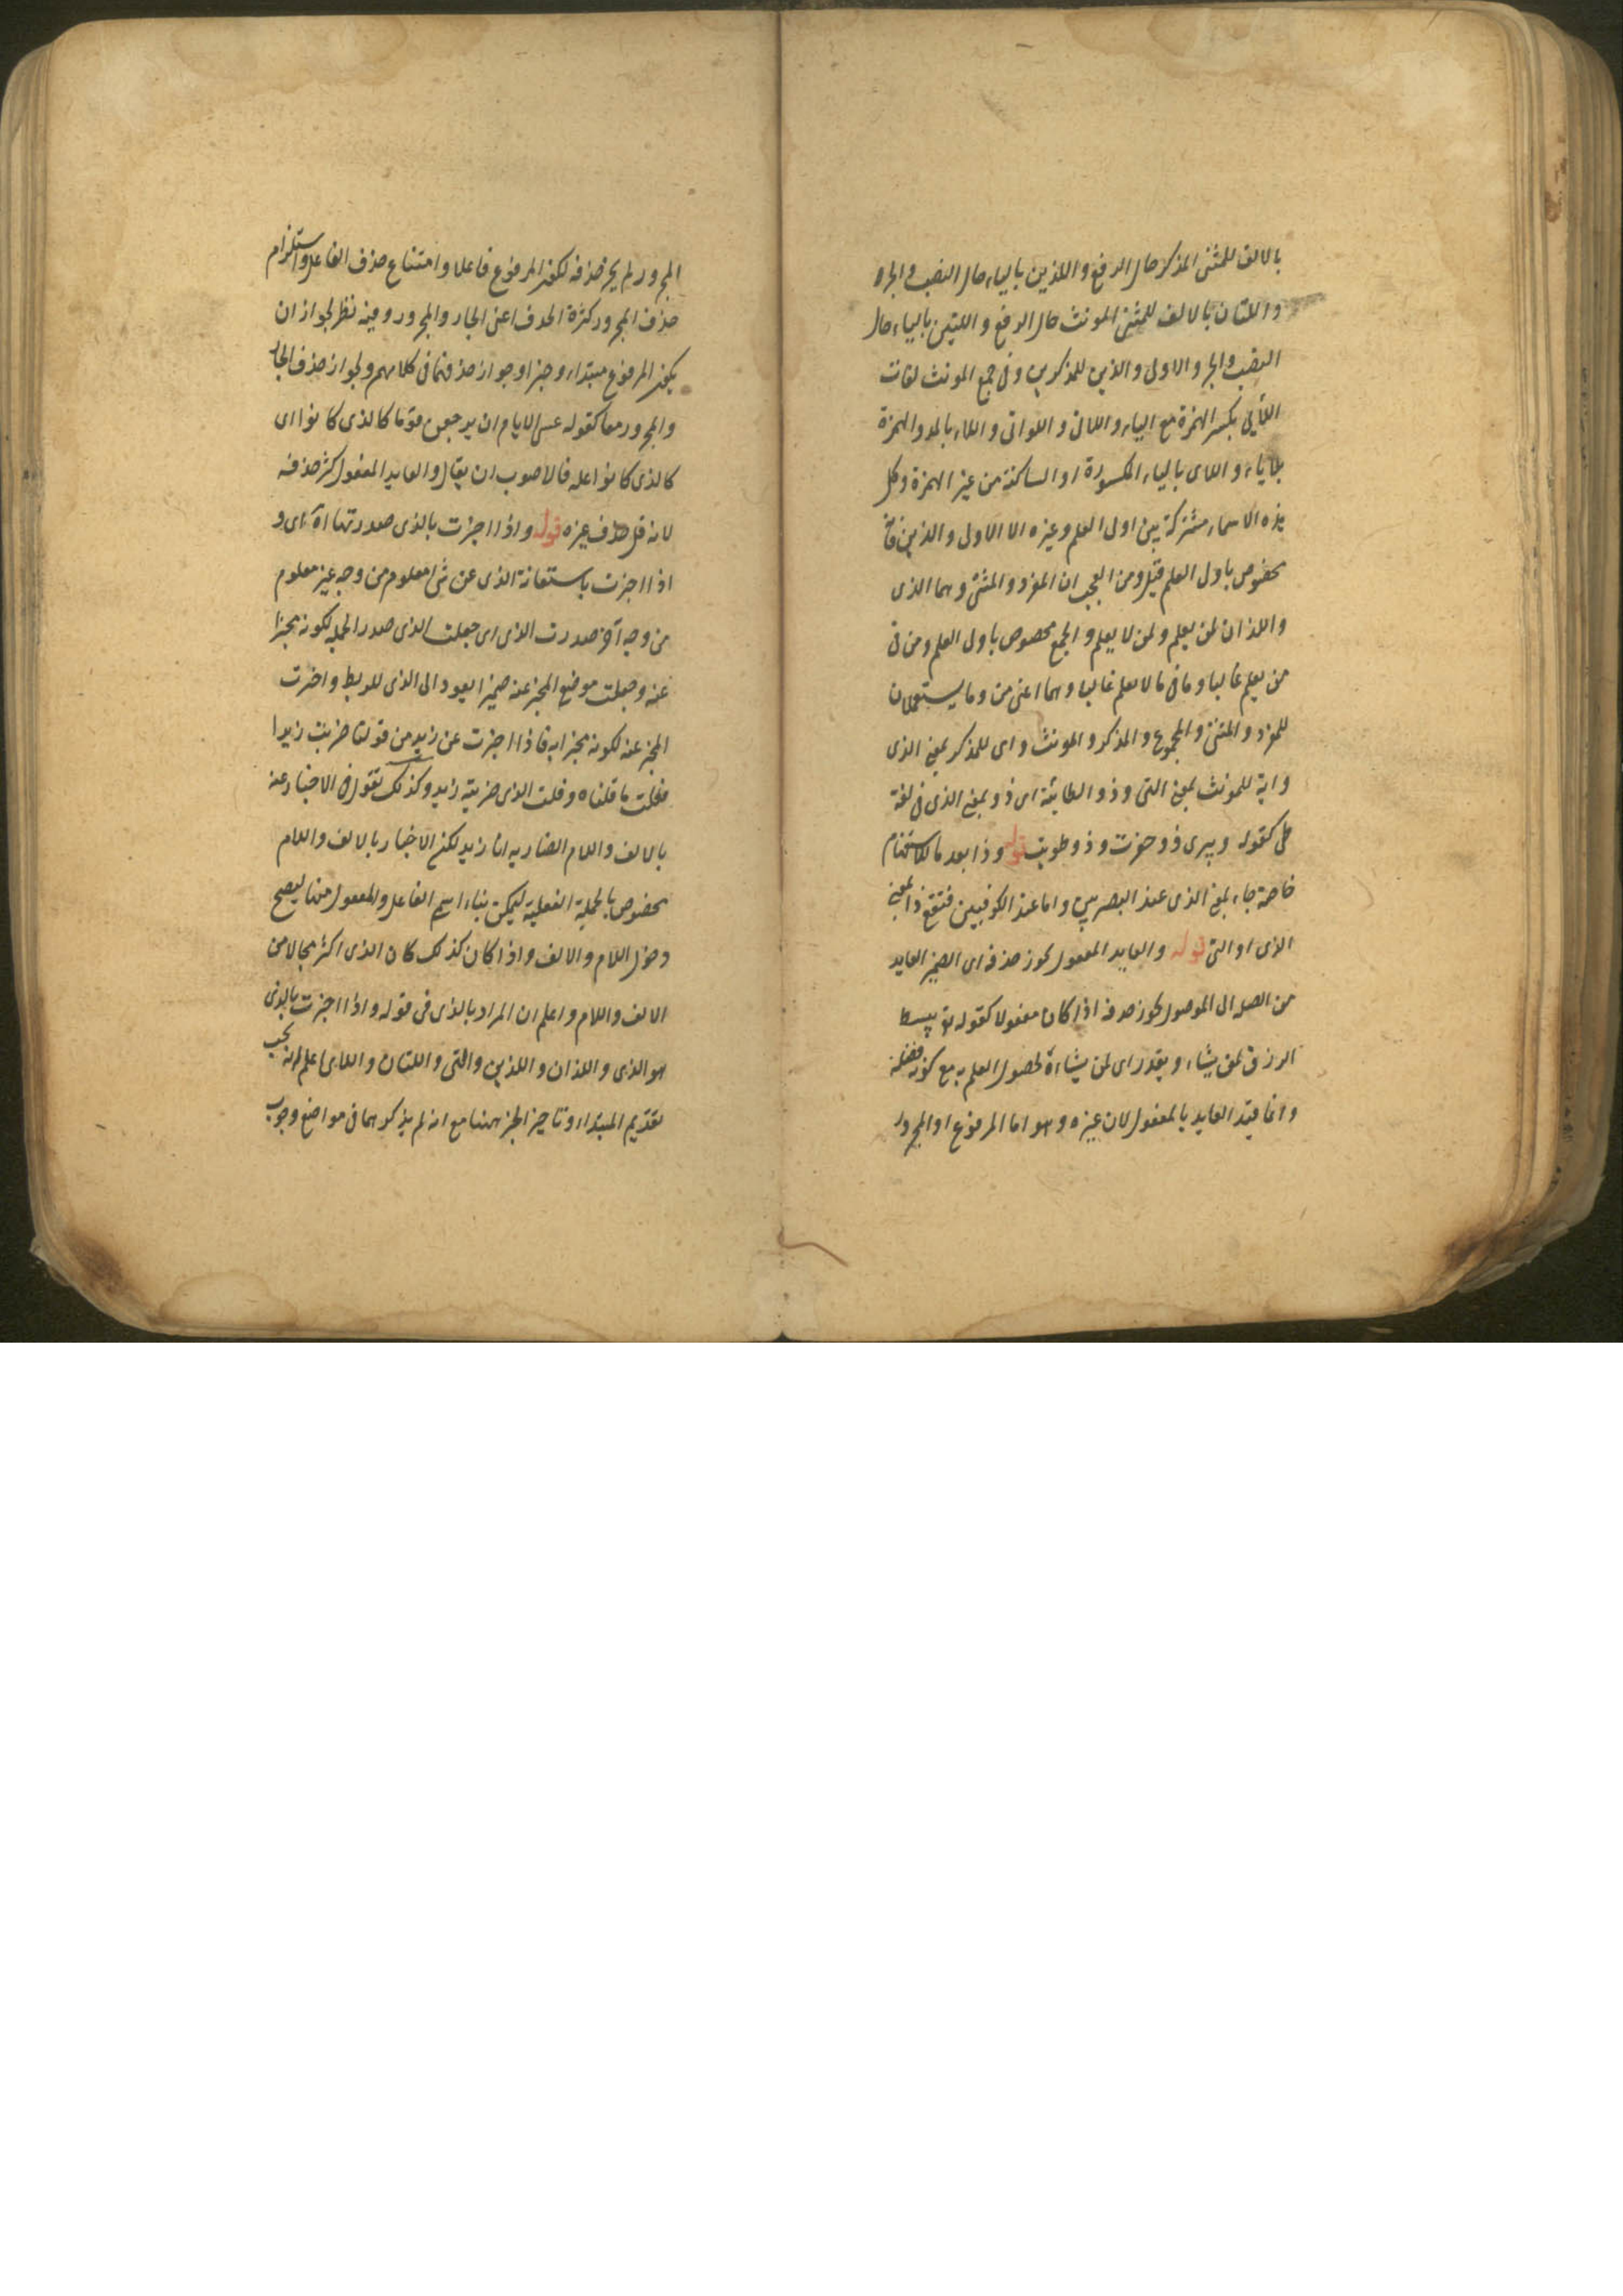 بالالف للمثنى المذكر حال الرفع واللذين بالياء حال النصب والجر
واللتان بالالف للمثنى المونث حال الرفع واللتين بالياء حال
النصب والجر والاولى والذين للمذكرين وفى جمع المونث لغات
اللآئى بكسر الهمزة مع الياء واللاتى واللواتى واللاء بالمد والهمزة
بلا ياء واللاى بالياء المكسورة او الساكنة من غير الهمزة وكل
هذه الاسماء مشتركة بين اولى العلم وغيره الا الاولى والذين
مخصوص باولى العلم قيل ومن العجب ان المفرد والمثنى وهما الذى
واللذان لمن يعلم ولمن لا يعلم والجمع مخصوص باولى العلم ومن فى
من يعلم غالبا وما فى ما لا يعلم غالبا وهما اعنى من وما يستعملان
للمفرد والمثنى والمجموع والمذكر والمونث واى للمذكر بمعنى الذى
واية للمونث بمعنى التى وذو الطائية اى ذو بمعنى الذى فى لغة
طى كقوله وبيرى ذو حفرت وذو طويت قوله وذا بعد ما للاستفهام
خاصة جاء بمعنى الذى عند البصريين واما عند الكوفيين فتقع ذا بمعنى
الذى او التى قوله والعايد المفعول يجوز حذفه اى الضمير العايد
من الصلة الى الموصول يجوز حذفه اذا كان مفعولا كقوله تع يبسط
الرزق لمن يشاء ويقدر اى لمن يشاءه لحصول العلم به مع كونه فضلة
وانما قيد العايد بالمفعول لان غيره وهو اما المرفوع او المجرور
المجرور لم يجز حذفه لكون المرفوع فاعلا وامتناع حذف الفاعل واستلزام
حذف المجرور كثرة الحذف اعنى الجار والمجرور وفيه نظر لجواز ان
يكون المرفوع مبتداء وخبرا وجواز حذفهما فى كلامهم ولجواز حذف الجار
والمجرور معا كقوله عسى الايام ان يرجعن قوما كالذى كانوا اى
كالذى كانوا عليه فالاصوب ان يقال والعايد المفعول كثر حذفه
لانه قل حذف غيره قوله واذا اخبرت بالذى صدرتها اه اى و
اذا اخبرت باستعانة الذى عن شى معلوم من وجه غير معلوم
من وجه آخر صدرت الذى اى جعلت الذى صدر الجملة لكونه مخبرا
عنه وجعلت موضع المخبر عنه ضميرا يعود الى الذى للربط واخرت
المخبر عنه لكونه مخبرا به فاذا اخبرت عن زيد من قولنا ضربت زيدا
فعلت ما قلناه وقلت الذى ضربته زيد وكذلك تقول فى الاخبار عنه
بالالف واللام الضاربه انا زيد لكن الاخبار بالالف واللام
مخصوص بالجملة الفعلية ليمكن بناء اسم الفاعل والمفعول منها ليصح
دخول اللام والالف واذا كان كذلك كان الذى اكثر مجالا من
الالف واللام واعلم ان المراد بالذى فى قوله واذا اخبرت بالذى
هو الذى واللذان واللذين والتى واللتان واللاى اعلم انه يجب
تقديم المبتداء وتاخير الخبر ههنا مع انه لم يذكرهما فى مواضع وجوب